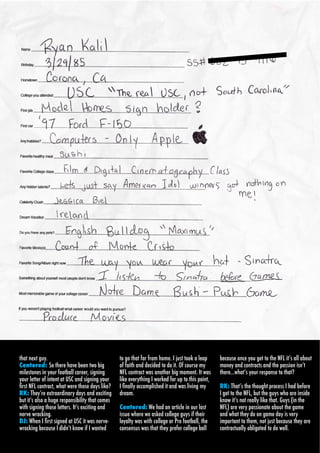 Name Ryan Kalil
Birthday 3/29/85 SS#
Hometown Corona, Ca
College you attended USC "The real USC, not South Carolina"
First job Model Homes sign holder?
First car '97 Ford F-150
Any hobbies? Computers - Only Apple
Favorite healthy treat Sushi
Favorite College class Film & Digital Cinematography Class
Any hidden talents? Lets just say American Idol winners got nothing on me!
Celebrity Crush Jessica Biel
Dream Vacation Ireland
Do you have any pets? English Bulldog "Maximus"
Favorite Movie(s) Count of Monte Cristo
Favorite Song/Album right now The way you wear your hat - Sinatra
Something about yourself most people don't know I listen to Sinatra before Games
Most memorable game of your college career Notre Dame Bush-Push Game
If you weren't playing football what career would you want to pursue?
Produce Movies
that next guy.
Centered: So there have been two big
milestones in your football career, signing
your letter of intent at USC and signing your
first NFL contract, what were those days like?
RK: They're extraordinary days and exciting
but it's also a huge responsibility that comes
with signing those letters. It's exciting and
nerve wracking.
DJ: When I first signed at USC it was nerve-
wracking because I didn't know if I wanted
to go that far from home. I just took a leap
of faith and decided to do it. Of course my
NFL contract was another big moment. It was
like everything I worked for up to this point,
I finally accomplished it and was living my
dream.
Centered: We had an article in our last
issue where we asked college guys if their
loyalty was with college or Pro football, the
consensus was that they prefer college ball
because once you get to the NFL it's all about
money and contracts and the passion isn't
there...what's your response to that?
RK: That's the thought process I had before
I got to the NFL, but the guys who are inside
know it's not really like that. Guys (in the
NFL) are very passionate about the game
and what they do on game day is very
important to them, not just because they are
contractually obligated to do well.